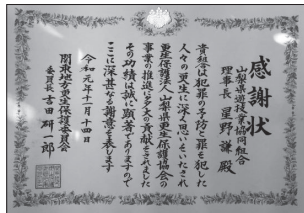 感謝状
山梨県遊技業協同組合
理事長 星野 謙 殿
貴組合は犯罪の予防と罪を犯した
人々の更生に深く思いをいたされ
更生保護法人山梨県更生保護協会の
事業の推進に多大の貢献をされました
その功績は誠に顕著でありますので
ここに深甚なる謝意を表します
令和元年十一月十四日
関東地方更生保護委員会
委員長 吉田 研一郎